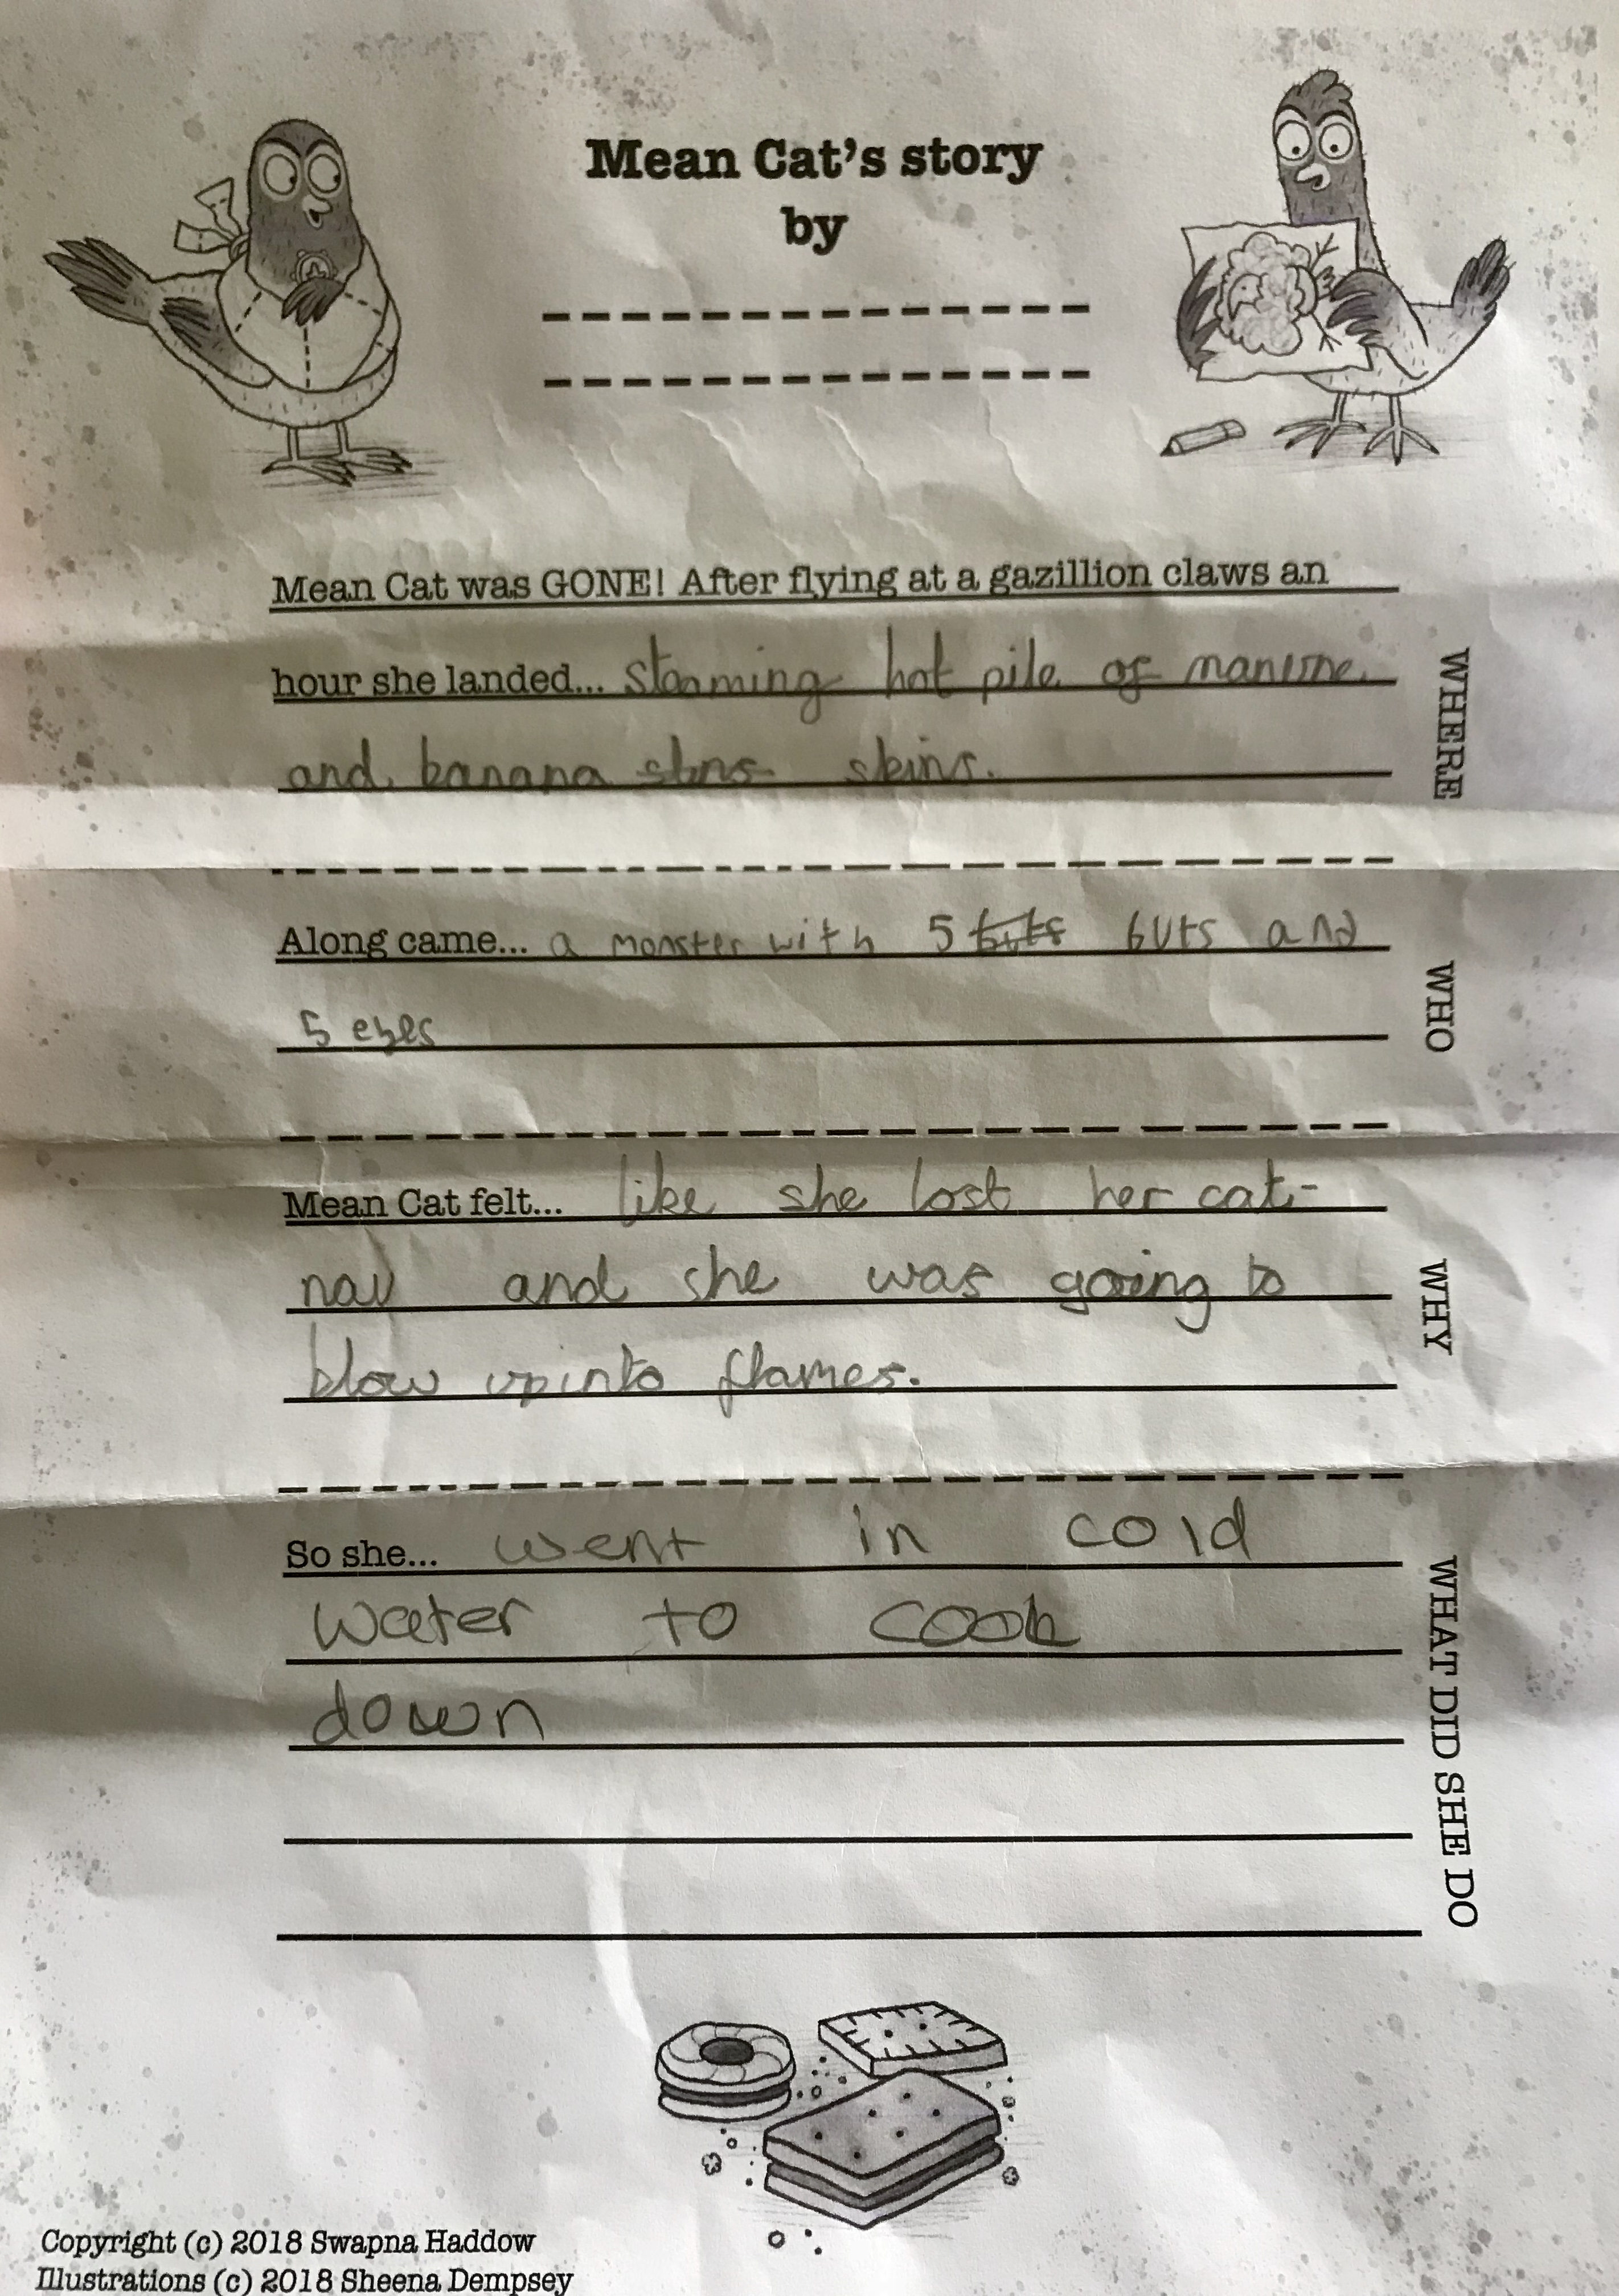 Mean Cat's story
by
Mean Cat was GONE! After flying at a gazillion claws an
hour she landed... steaming hot pile of manure
and banana skins.
WHERE
Along came... a monster with 5 buts and
5 eyes
WHO
Mean Cat felt... like she lost her cat-
nav and she was going to
blow up into flames.
WHY
So she... went in cold
water to cook
down
WHAT DID SHE DO
Copyright (c) 2018 Swapna Haddow
Illustrations (c) 2018 Sheena Dempsey